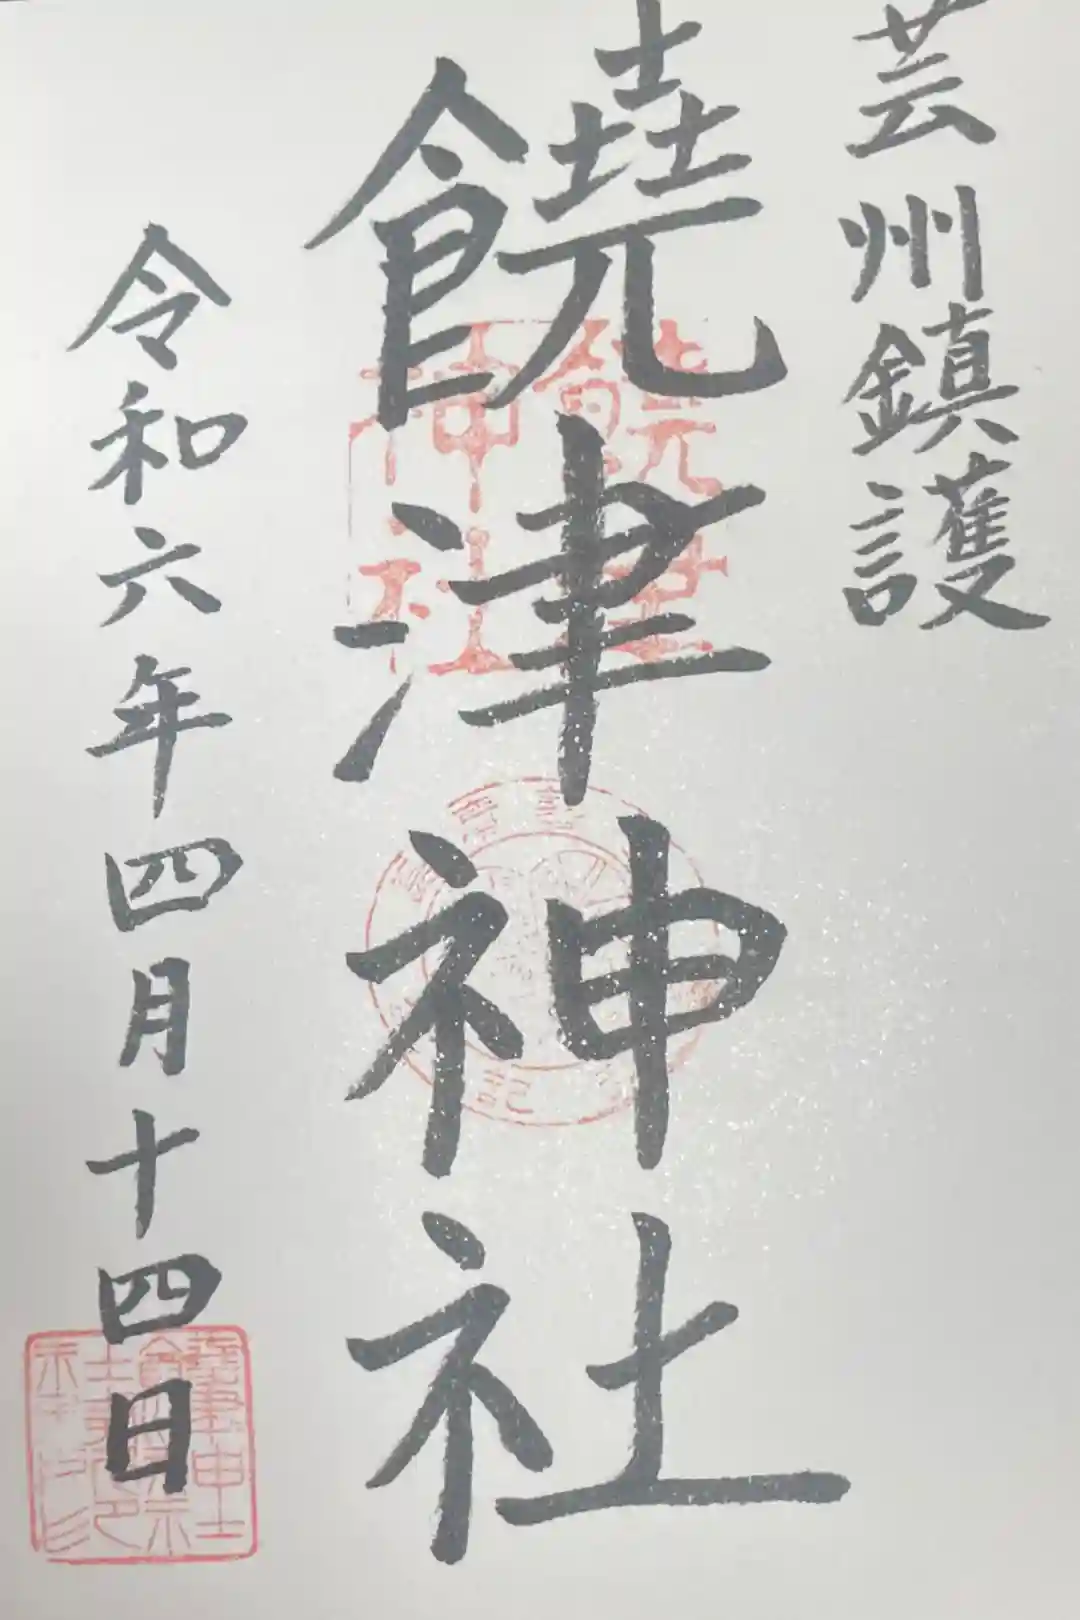 芸州鎮護
饒津神社
令和六年四月十四日
饒津神社